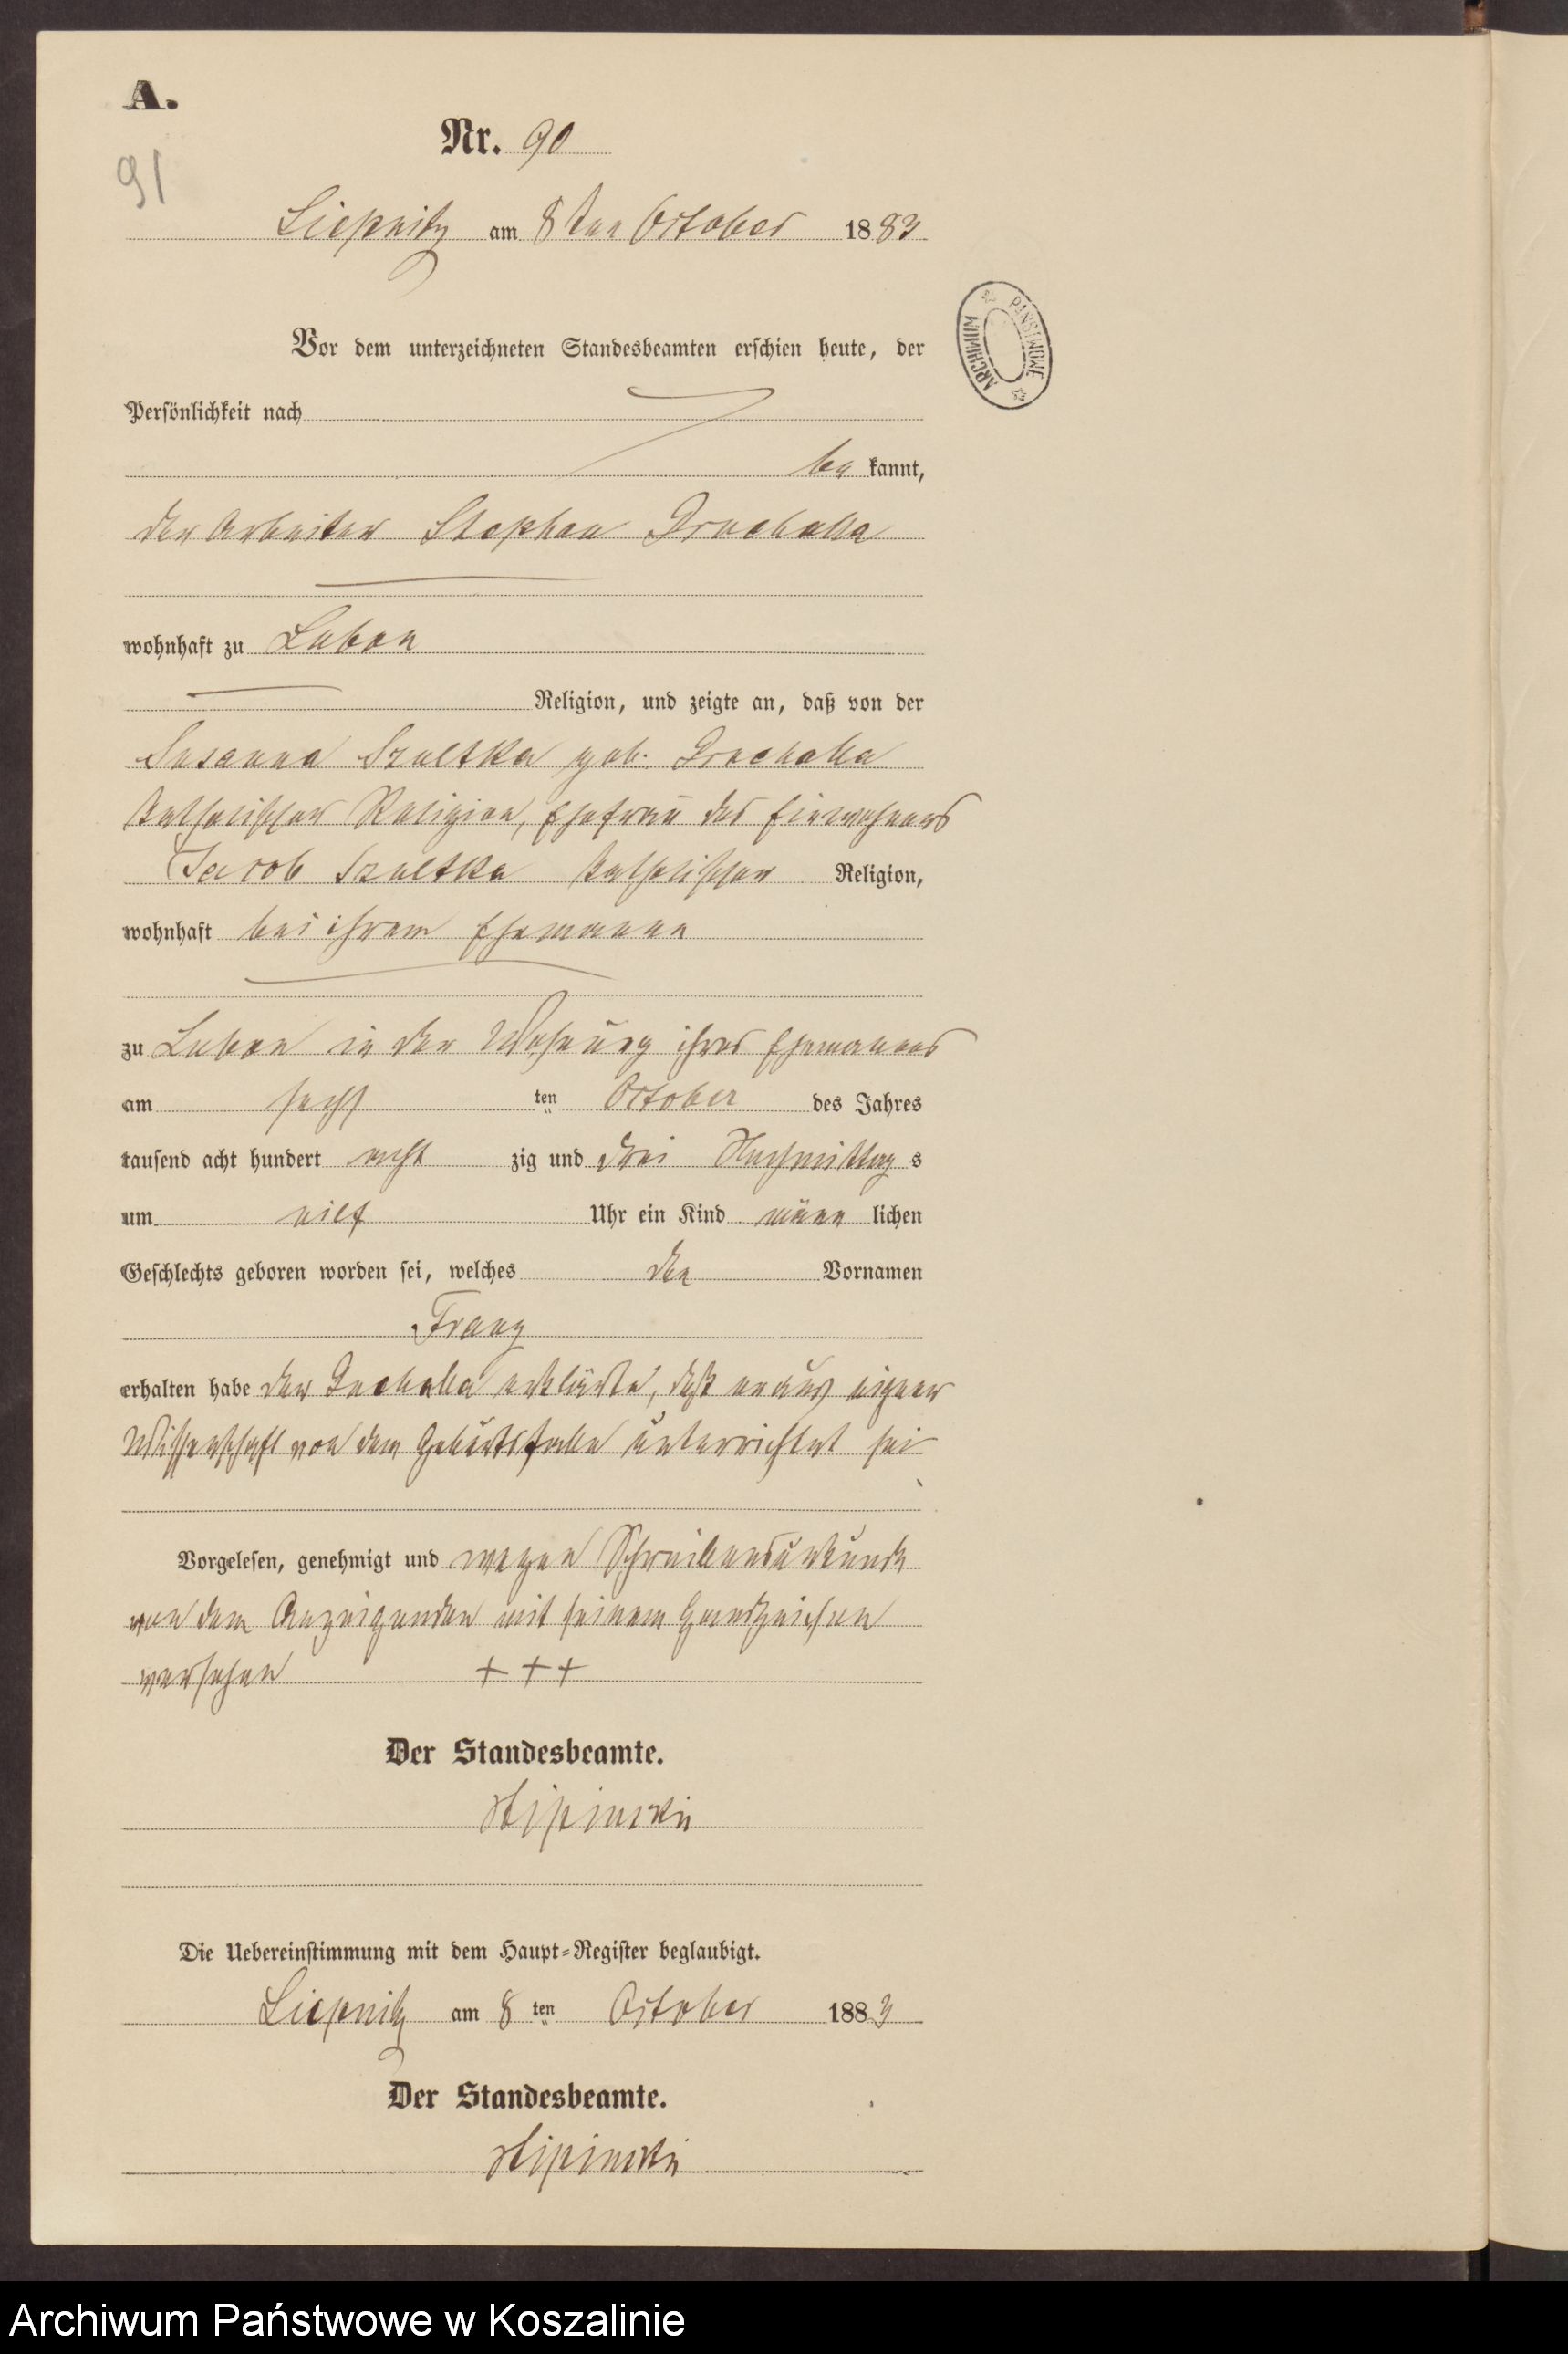 A.
Nr. 90
91
Liepnitz am 8ten October 1883
Vor dem unterzeichneten Standesbeamten erschien heute, der
Persönlichkeit nach
be kannt,
der Arbeiter Stephan
wohnhaft zu Lubon
Religion, und zeigte an, daß von der
Susanna Szultka geb.
katholischer Religion, Ehefrau des Einwohners
Jacob Szultka katholischer Religion,
wohnhaft bei ihrem Ehemanne
zu Lubon in der Wohnung ihres Ehemannes
am sechs ten October des Jahres
tausend acht hundert acht zig und drei Nachmittag s
um eilf Uhr ein Kind männ lichen
Geschlechts geboren worden sei, welches den Vornamen
Franz
erhalten habe der erklärte, daß er aus eigner
Wissenschaft von dem Geburtsfalle unterrichtet sei
Vorgelesen, genehmigt und wegen Schreibensunkunde
von dem Anzeigenden mit seinem Handzeichen
versehen +++
Der Standesbeamte.
Die Uebereinstimmung mit dem Haupt-Register beglaubigt.
Liepnitz am 8 ten October 1883
Der Standesbeamte.
ARCHIWUM PAŃSTWOWE
Archiwum Państwowe w Koszalinie